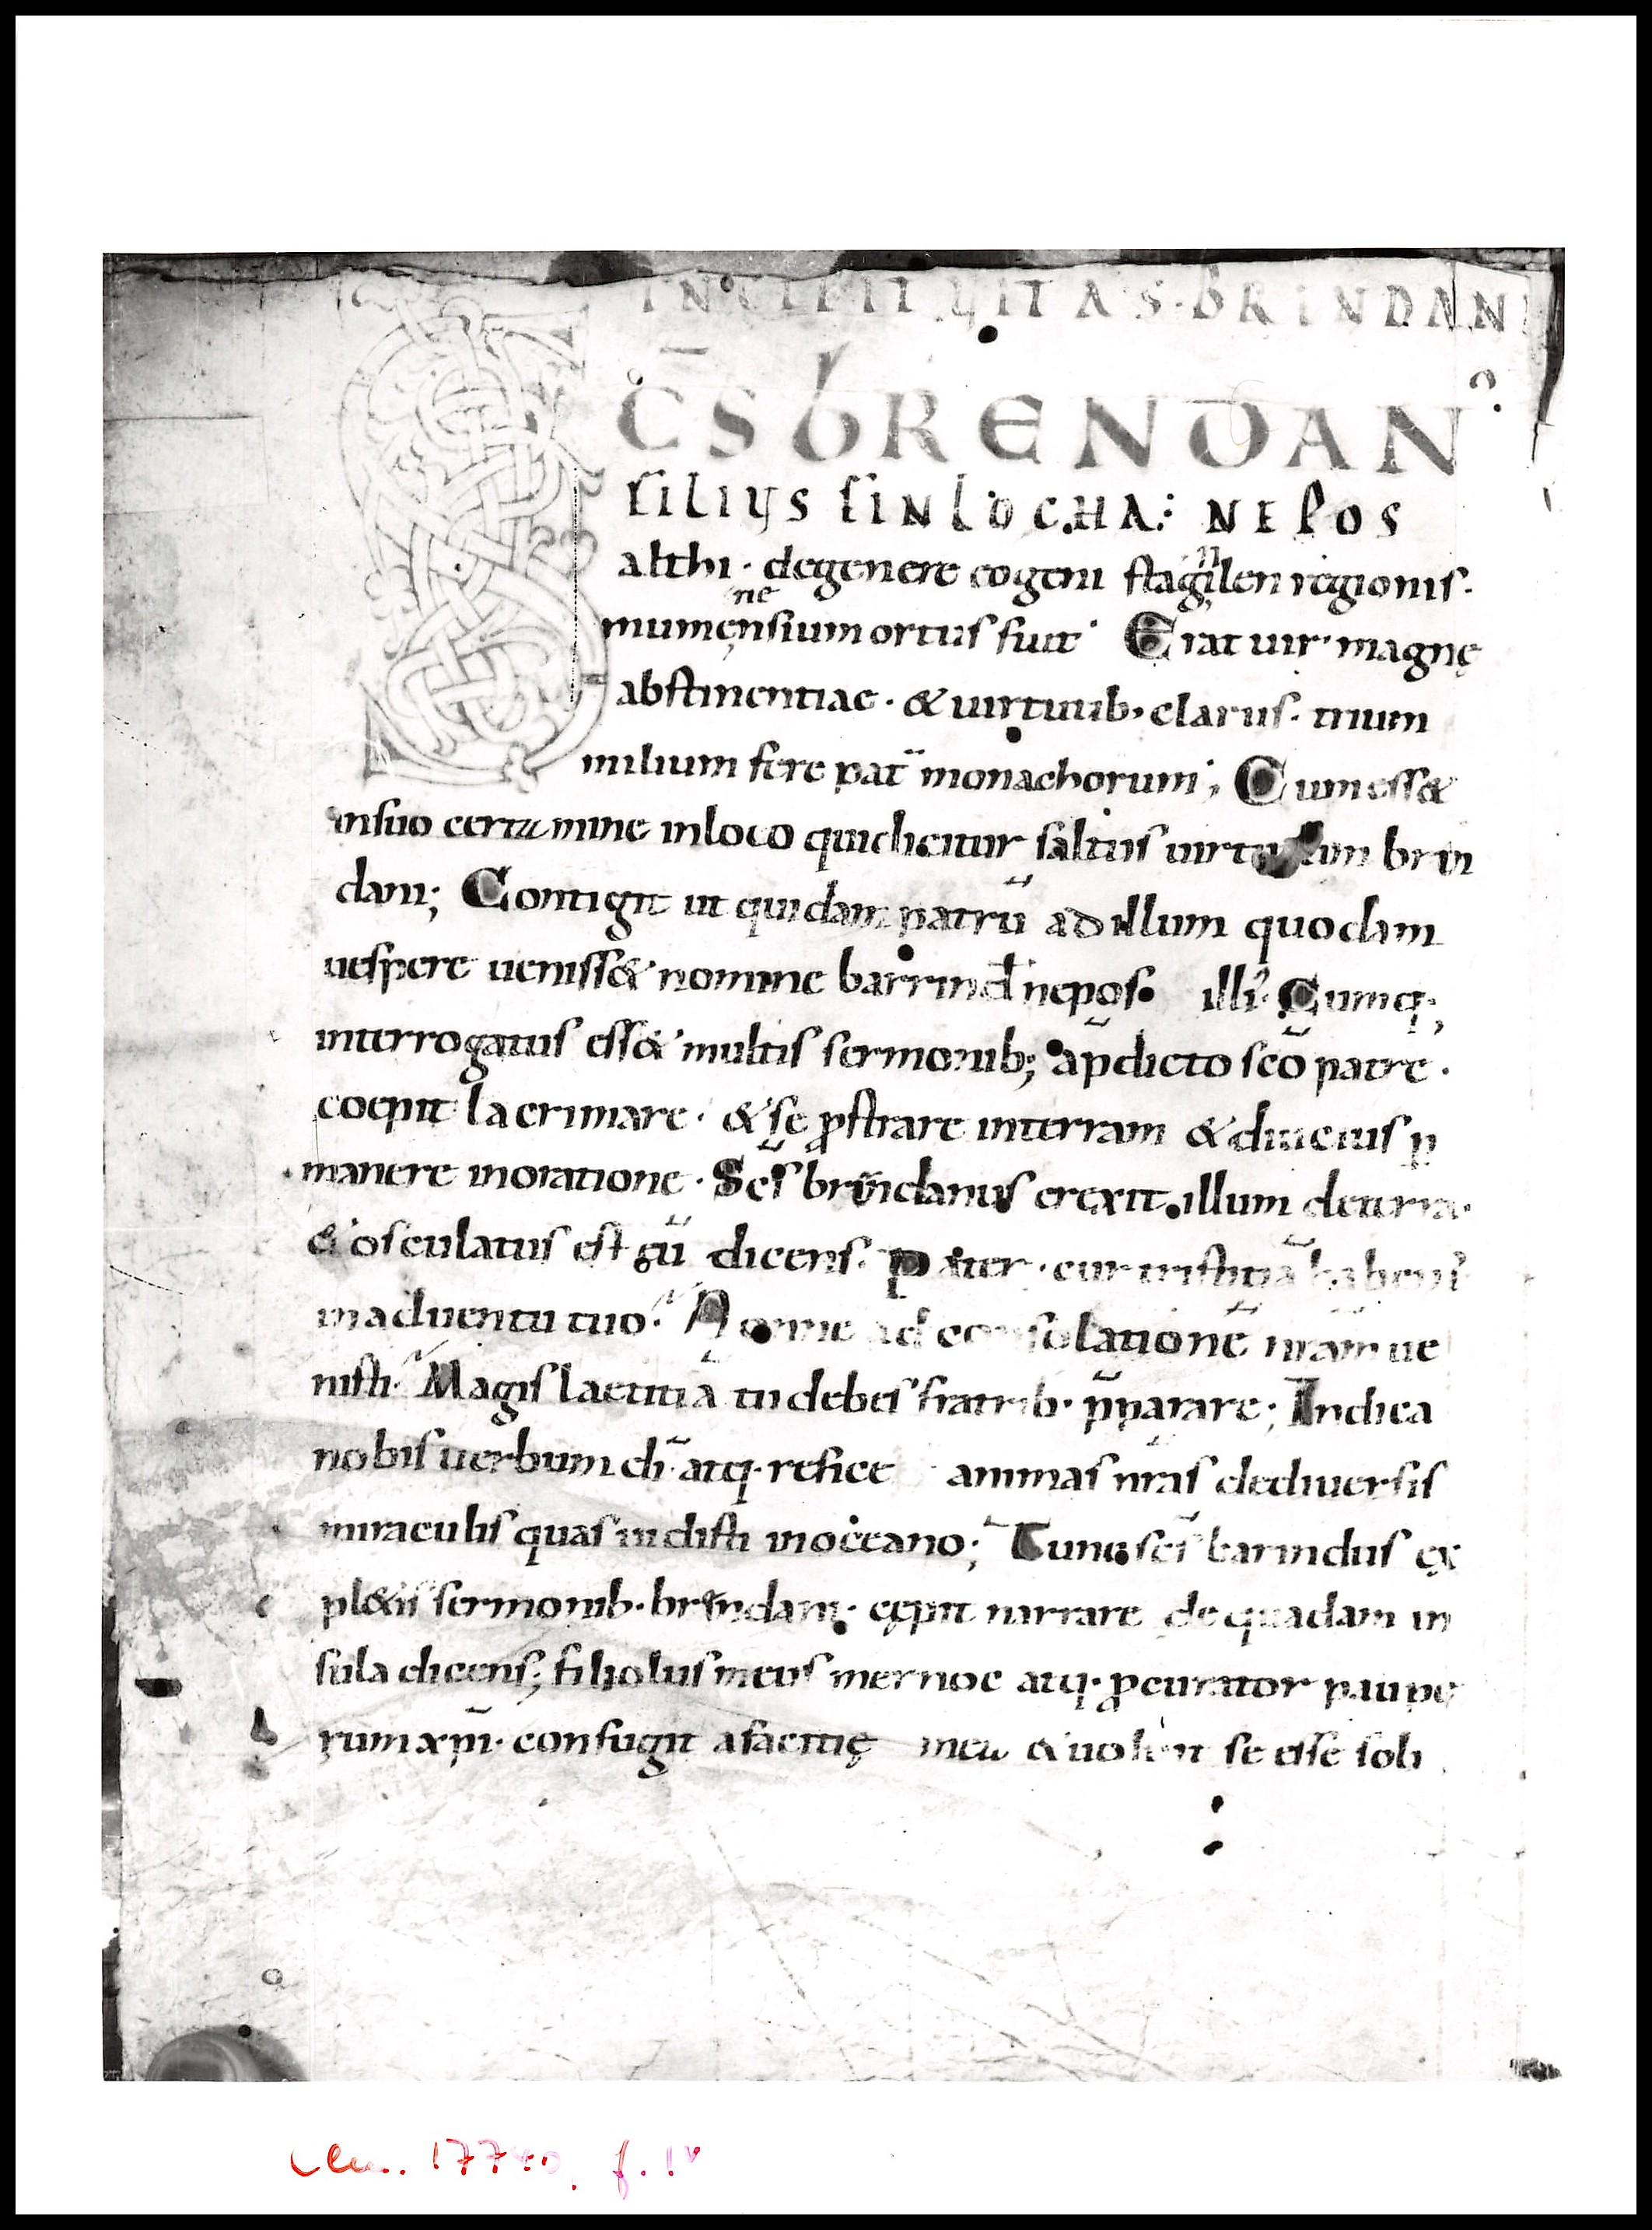 INCIPIT VITA S. BRINDANI
SC̄S BRENDAN⁹
FILIUS FINLOCHA: NEPOS
althi · degenere eogeni stagnilen regionis ·
ne
mumensium ortus fuit · Erat uir magnę
abstinentiae · & uirtutib; clarus · trium
milium fere pat̄ monachorum ; Cum ess&
insuo certamine inloco quidicitur saltus uirtutum brin
dani ; Contigit ut quidam patrū ad illum quodam
uespere ueniss& nomine barrind nepos illi⁹ · Cumq;
interrogatus ess& multis sermonib; a p̄dicto sc̄o patre ·
coepit lacrimare · & se ꝓstrare interram & diucius ꝑ
manere inoratione · Sc̄s brindanus erexit illum deterra ·
& osculatus est eū dicens · Pater · cur tristitiā habem⁹
in aduentu tuo · Nonne ad consolationē nr̄am ue
nisti · Magis laetitiā tu debes fratrib · p̄parare ; Indica
nobis uerbum dī atq · refice animas nr̄as dediuersis
miraculis quas uidisti in oceano ; Tunc sc̄s barindus ex
pl&is sermonib · brindani · cępit narrare de quadam in
sula dicens ; filiolus meus mernoc atq · ꝓcurator paupe
rum xp̄i · confugit afacię mea & uoluit se esse soli
Clm. 17740, f. 1v